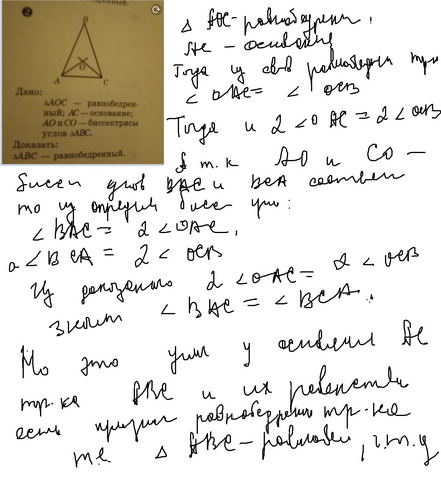 2
B
O
A
C
Дано:
△AOC — равнобедрен-
ный; AC — основание;
AO и CO — биссектрисы
углов △ABC.
Доказать:
△ABC — равнобедренный.
△ AOC - равнобедрен.
AC - основание
Тогда из св равнобедрен тр
< OAC = < OCB
Тогда и 2 < OAC = 2 < OCB
А т.к AO и CO —
биссек углов BAC и BCA соответ
то из определ биссек угл:
< BAC = 2 < OAC,
а < BCA = 2 < OCB
Из доказанного 2 < OAC = 2 < OCB
значит < BAC = < BCA.
Но это углы у основания AC
тр-ка ABC и их равенство
есть признак равнобедренно тр-ка
т.е △ ABC - равнобед, ч.т.д